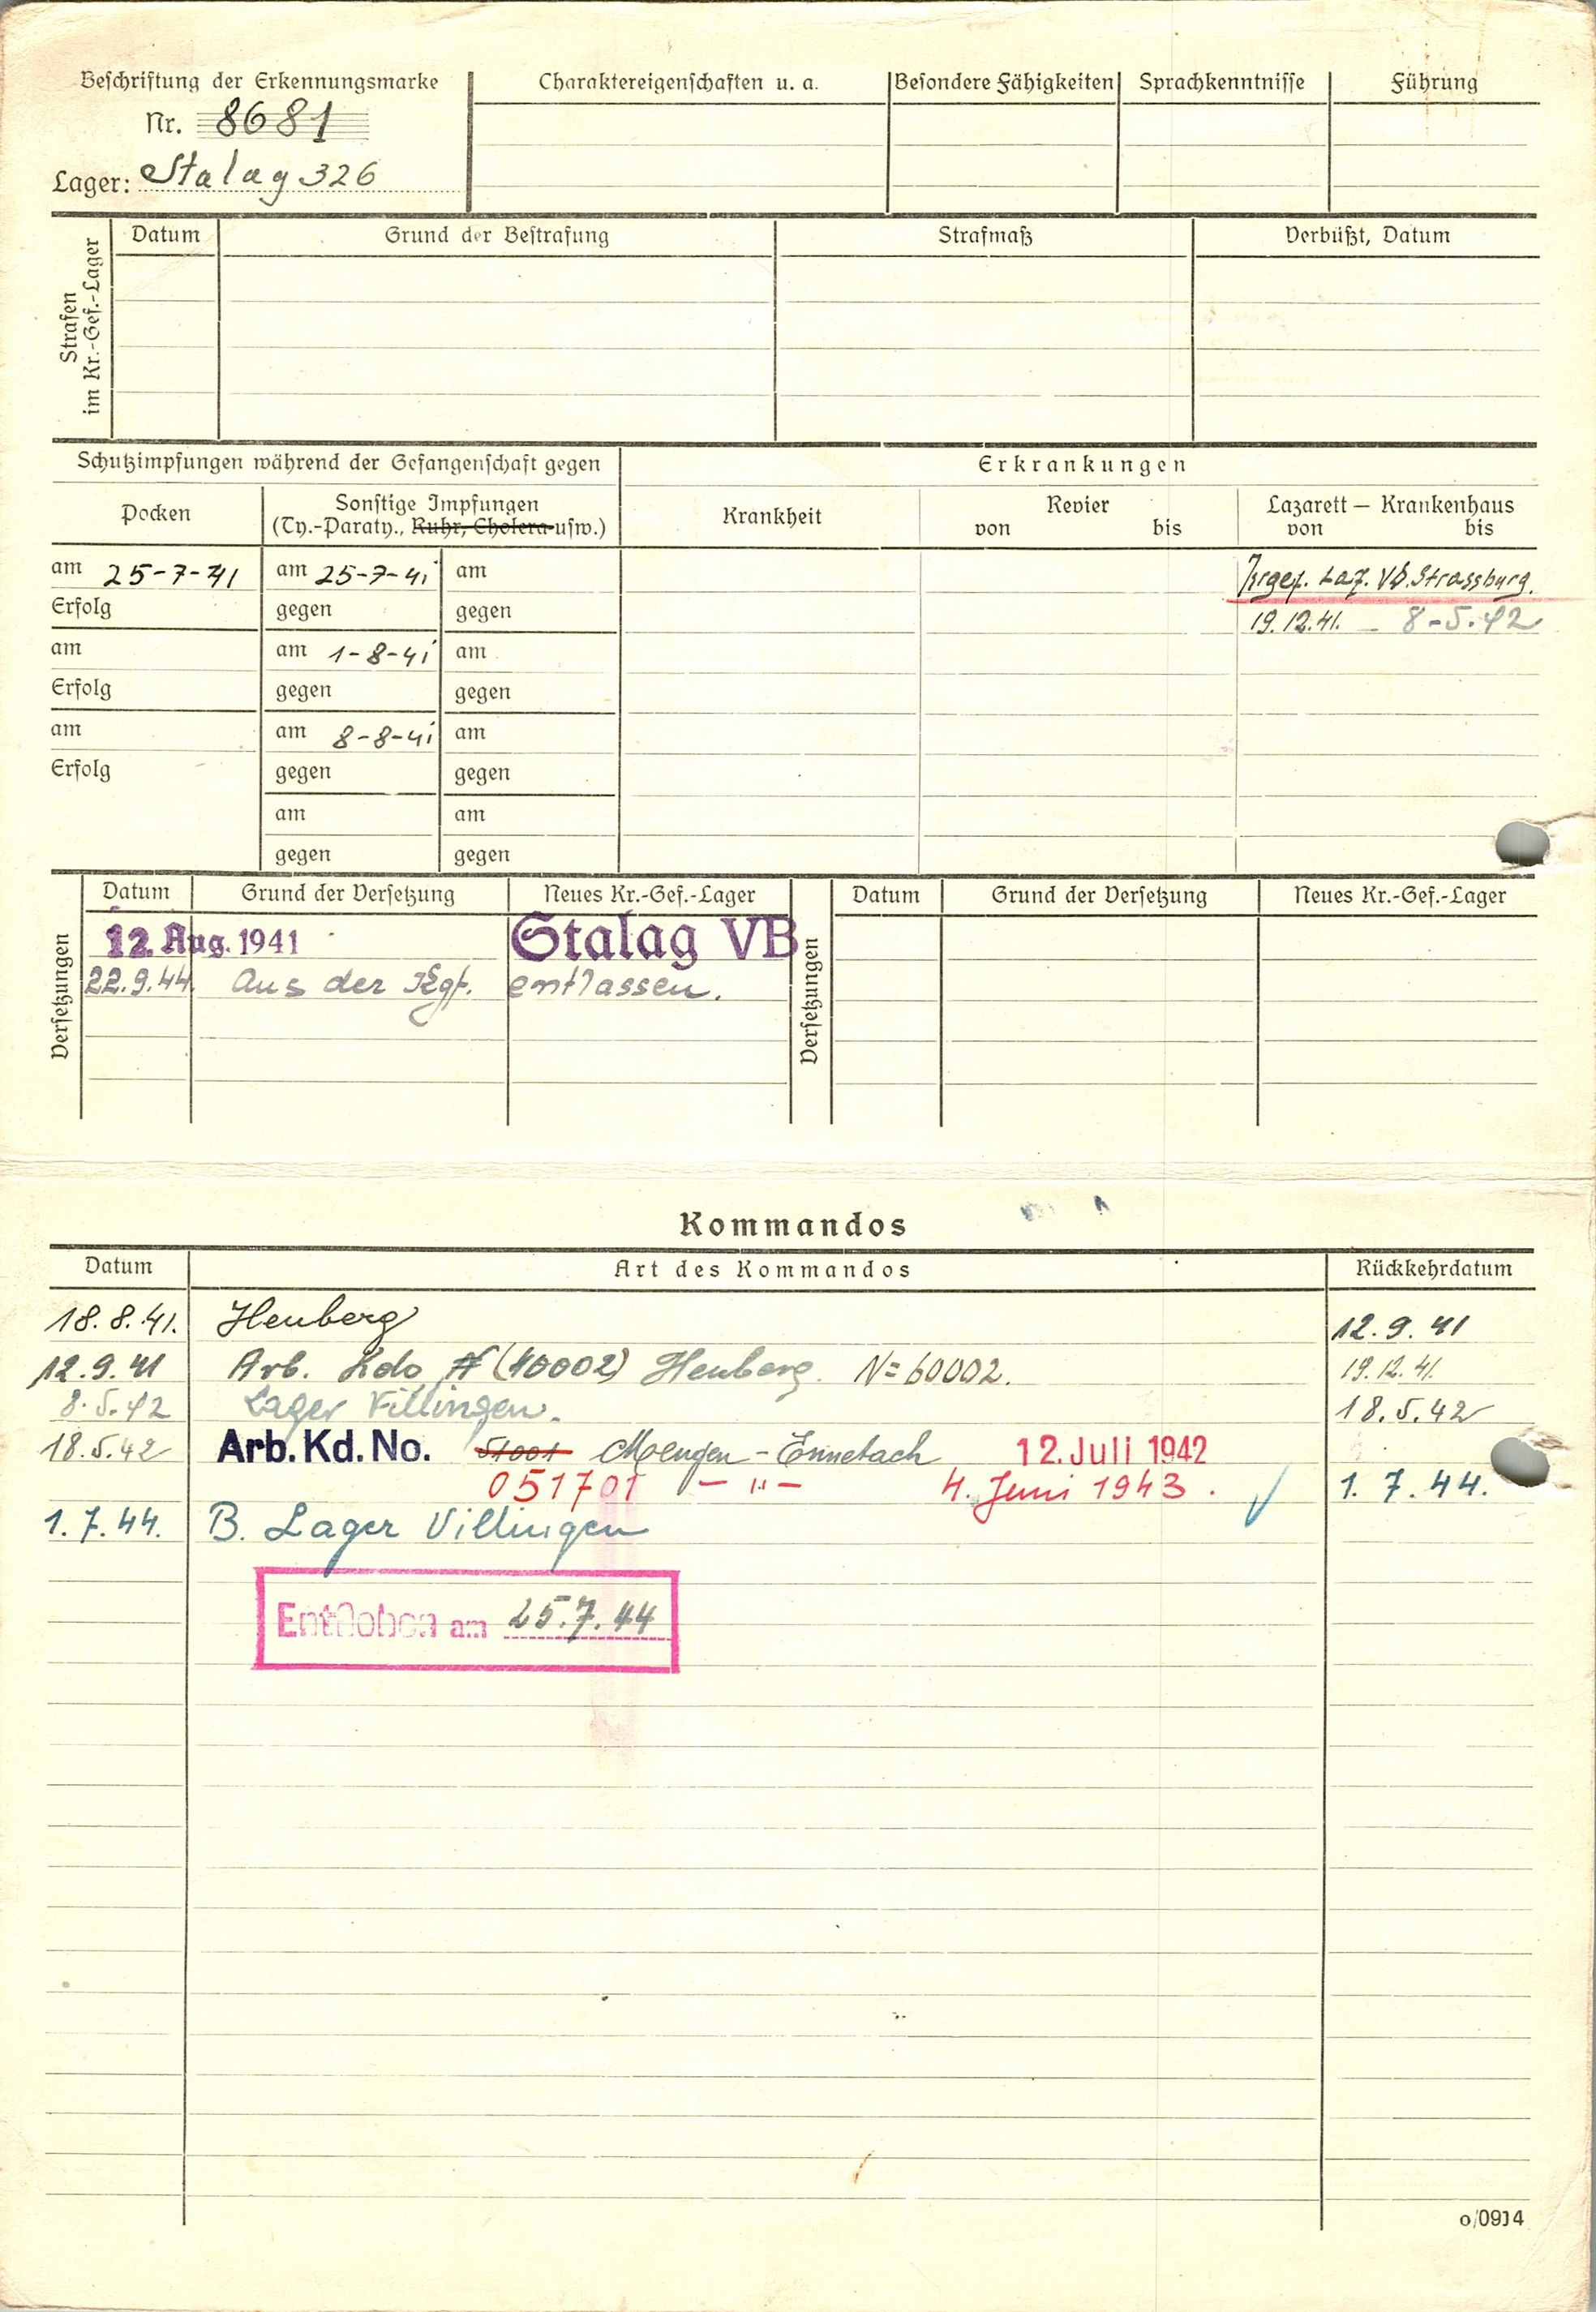 Beschriftung der Erkennungsmarke
Nr. 8681
Lager: Stalag 326
Charaktereigenschaften u. a.
Besondere Fähigkeiten
Sprachkenntnisse
Führung
Strafen
im Kr.-Gef.-Lager
Datum
Grund der Bestrafung
Strafmaß
Verbüßt, Datum
Schutzimpfungen während der Gefangenschaft gegen
Erkrankungen
Pocken
Sonstige Impfungen
(Ty.-Paraty., Ruhr, Cholera usw.)
Krankheit
Revier
von bis
Lazarett — Krankenhaus
von bis
am 25-7-41 am 25-7-41 am
Krgef. Laz. VB. Strassburg.
Erfolg gegen gegen
19.12.41. - 8-5.42
am am 1-8-41 am
Erfolg gegen gegen
am am 8-8-41 am
Erfolg gegen gegen
am am
gegen gegen
Versetzungen
Datum Grund der Versetzung Neues Kr.-Gef.-Lager
12. Aug. 1941 Stalag VB
22.9.44. Aus der Kgf. entlassen.
Versetzungen
Datum Grund der Versetzung Neues Kr.-Gef.-Lager
Kommandos
Datum Art des Kommandos Rückkehrdatum
18.8.41. Heuberg 12.9.41
12.9.41 Arb. Kdo (40002) Heuberg. N= 60002. 19.12.41.
8.5.42 Lager Villingen. 18.5.42
18.5.42 Arb. Kd. No. 51001 Moengen - Ennetach 12. Juli 1942
051701 — " — 4. Juni 1943. 1.7.44.
1.7.44. B. Lager Villingen
Entflohen am 25.7.44
o/0914